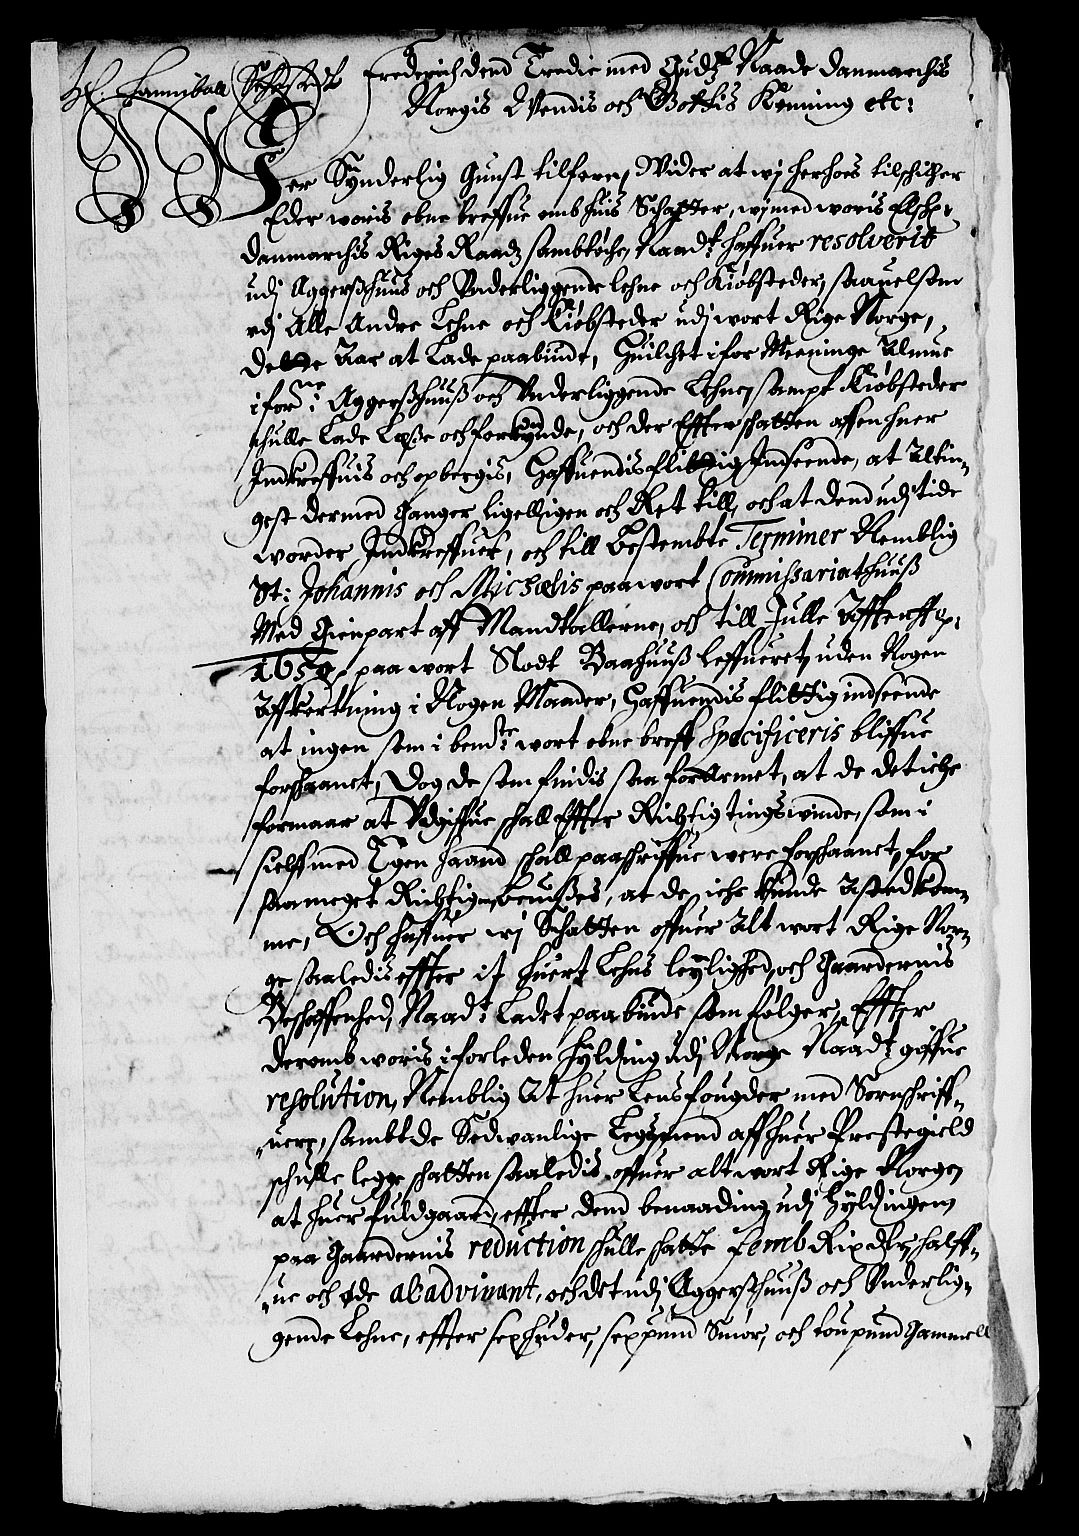 H. Hanniball Sehested
Frederich dend Tredie med Gudz Naade Danmarchis
Norgis Wendis och Gottis Konning etc:
Wor Synderlig Gunst tilforn, Wider at wj herhoes tilschicher
Eder woris obne breffue omb huis Schatter, wj med woris Elschel:
Danmarchis Riges Raadz sambtøche, Naadt haffuer resolverit
udj Aggershuus och Underliggende Lehne och Kiøbsteder, saauelsom
udj Alle Andre Lehne och Kiøbsteder udj wort Rige Norge,
Dette Aar at Lade paabiude, Huilchet i for Meeninge Almue
i forne: Aggerszhuusz och Underliggende Lehne, sampt Kiøbsteder
schulle Lade Læsze och forkynde, och der Effter schatten aff en huer
Indkreffuis och opbergis, Haffuendis flittig Indseende, at Altin-
gest dermed Ganger ligelligen och Ret till, och at dend udj tide
worder Indkreffuet, och till bestembte Terminer Nemblig
St: Johannis och Michaelis paa wort Commissariathuusz
Med Gienpart aff Mandtallerne, och till Julle Afften
paa wort Slodt Baahuusz leffueret, uden Nogen
Affkortning i Nogen Maader, Haffuendis flittig indseende
at ingen som i bemte: wort obne breff specificeris bliffue
forschaanet, Dog de som findis saa forarmet, at de det iche
formaar at Udgiffue schall Effter Richtig tingswinde, som i
sielff med Egen haand schall paaschriffue were forschaanet, for
saa meget Richtigen beuiszes, at de iche kunde Afsted kom-
me, Och haffuer wj Schatten offuer Alt wort Rige Nor-
ge saaledis effter it huert Lehns leylighed, och Gaardernis
Beschaffenhed, Naadt: Ladet paabiude som følger, Effter
deromb woris i forleden Hylding udj Norge Naadt: giffue
resolution, Nemblig At huer Lens fougder med Sornschriff-
uere, sambt de Sedwanlige Legsmend aff huer Prestegield
schulle legge schatten saaledis offuer alt wort Rige Norge,
at huer fuldgaard, effter dend benaading udj Hyldingen
paa Gaardernis reduction schulle schatte femb Rixdlr, halff-
ue och øde al advinant, och det udj Aggerszhuusz och Underlig-
gende Lehne, effter sex huder, sex pund Smør, och tou pund Gammell